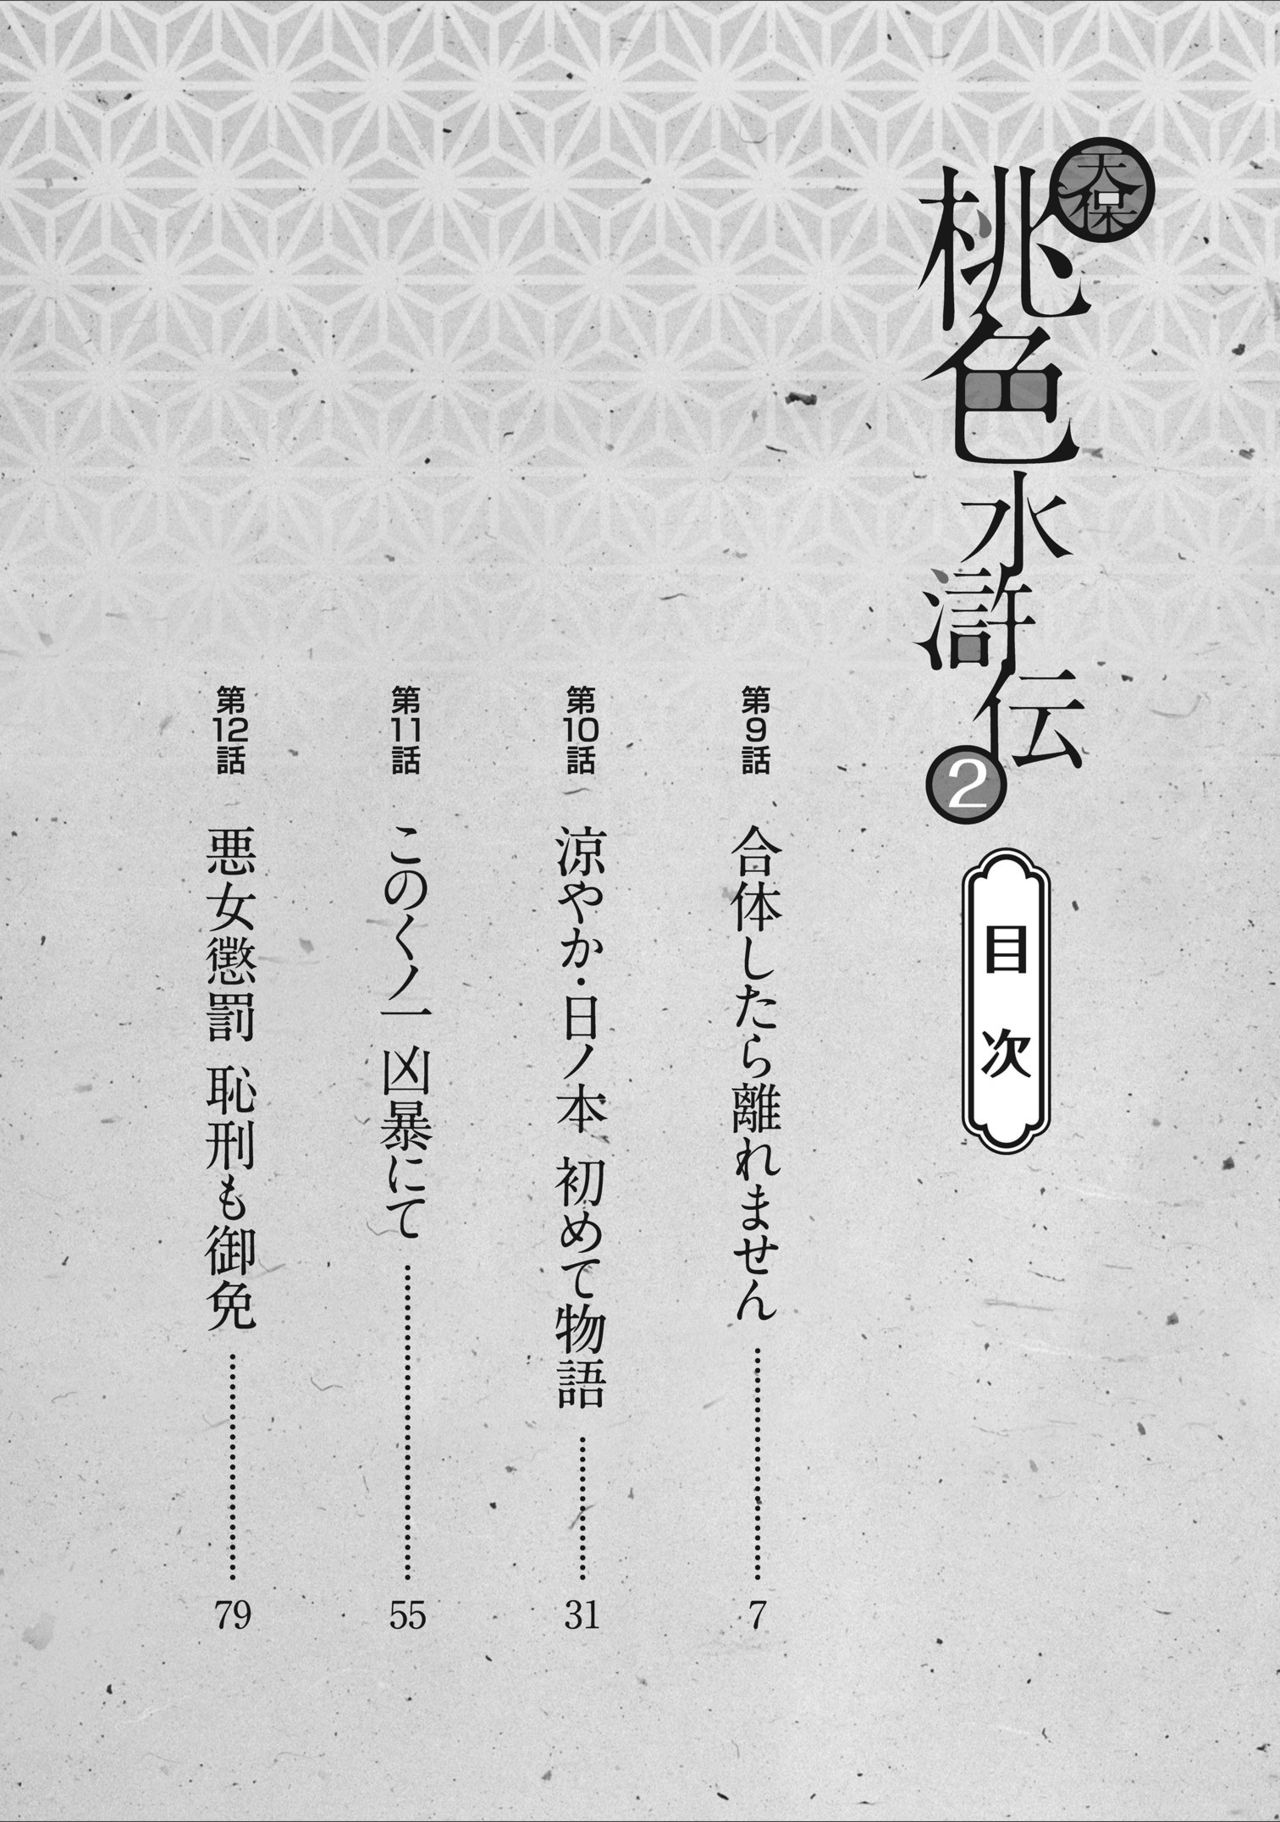 天保
桃色水滸伝
2
目次
第9話 合体したら離れません 7
第10話 涼やか・日ノ本 初めて物語 31
第11話 このくノ一 凶暴にて 55
第12話 悪女懲罰 恥刑も御免 79